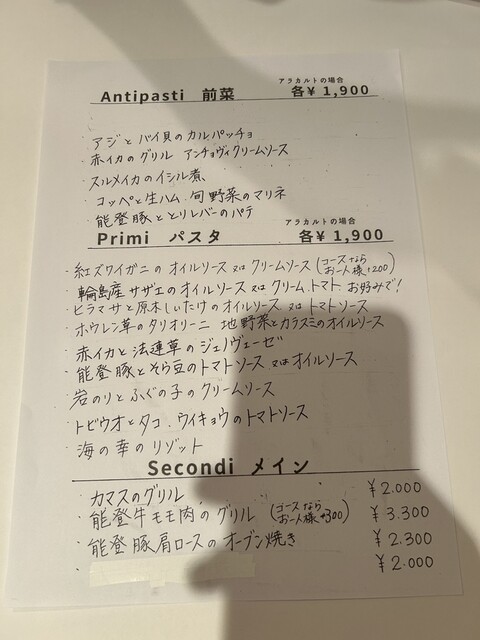 アラカルトの場合
Antipasti 前菜 各¥ 1,900
・アジとバイ貝のカルパッチョ
・赤イカのグリル アンチョヴィクリームソース
・スルメイカのイシル煮
・コッペと生ハム、旬野菜のマリネ
・能登豚ととりレバーのパテ
アラカルトの場合
Primi パスタ 各¥ 1,900
・紅ズワイガニの オイルソース 又は クリームソース (コースなら お一人様+200)
・輪島産サザエのオイルソース 又は クリーム、トマト お好みで!
・ヒラマサと原木しいたけのオイルソース 又は トマトソース
・ホウレン草のタリオリーニ 地野菜とカラスミのオイルソース
・赤イカと法連草のジェノヴェーゼ
・能登豚とそら豆のトマトソース 又は オイルソース
・岩のりとふぐの子のクリームソース
・トビウオとタコ、ウイキョウのトマトソース
・海の幸のリゾット
Secondi メイン
・カマスのグリル ¥2.000
・能登牛モモ肉のグリル (コースなら お一人様+300) ¥3.300
・能登豚肩ロースのオーブン焼き ¥2.300
・ ¥2.000